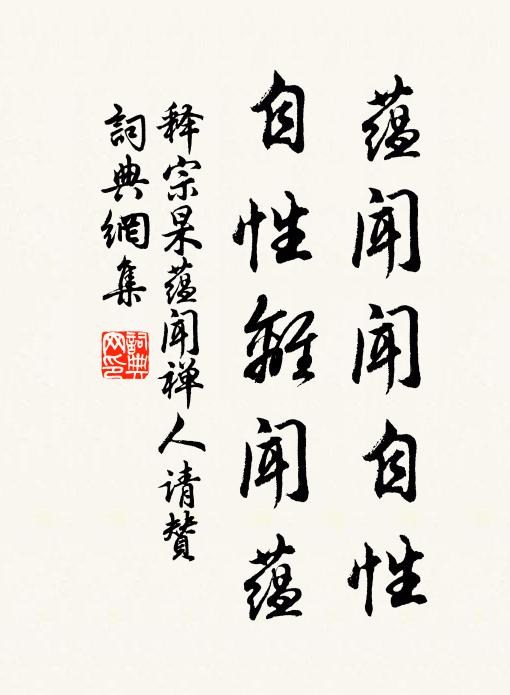 蕴闻闻自性
自性離闻蕴
释宗杲蕴闻禅人请赞
詞典網集
詞典網印